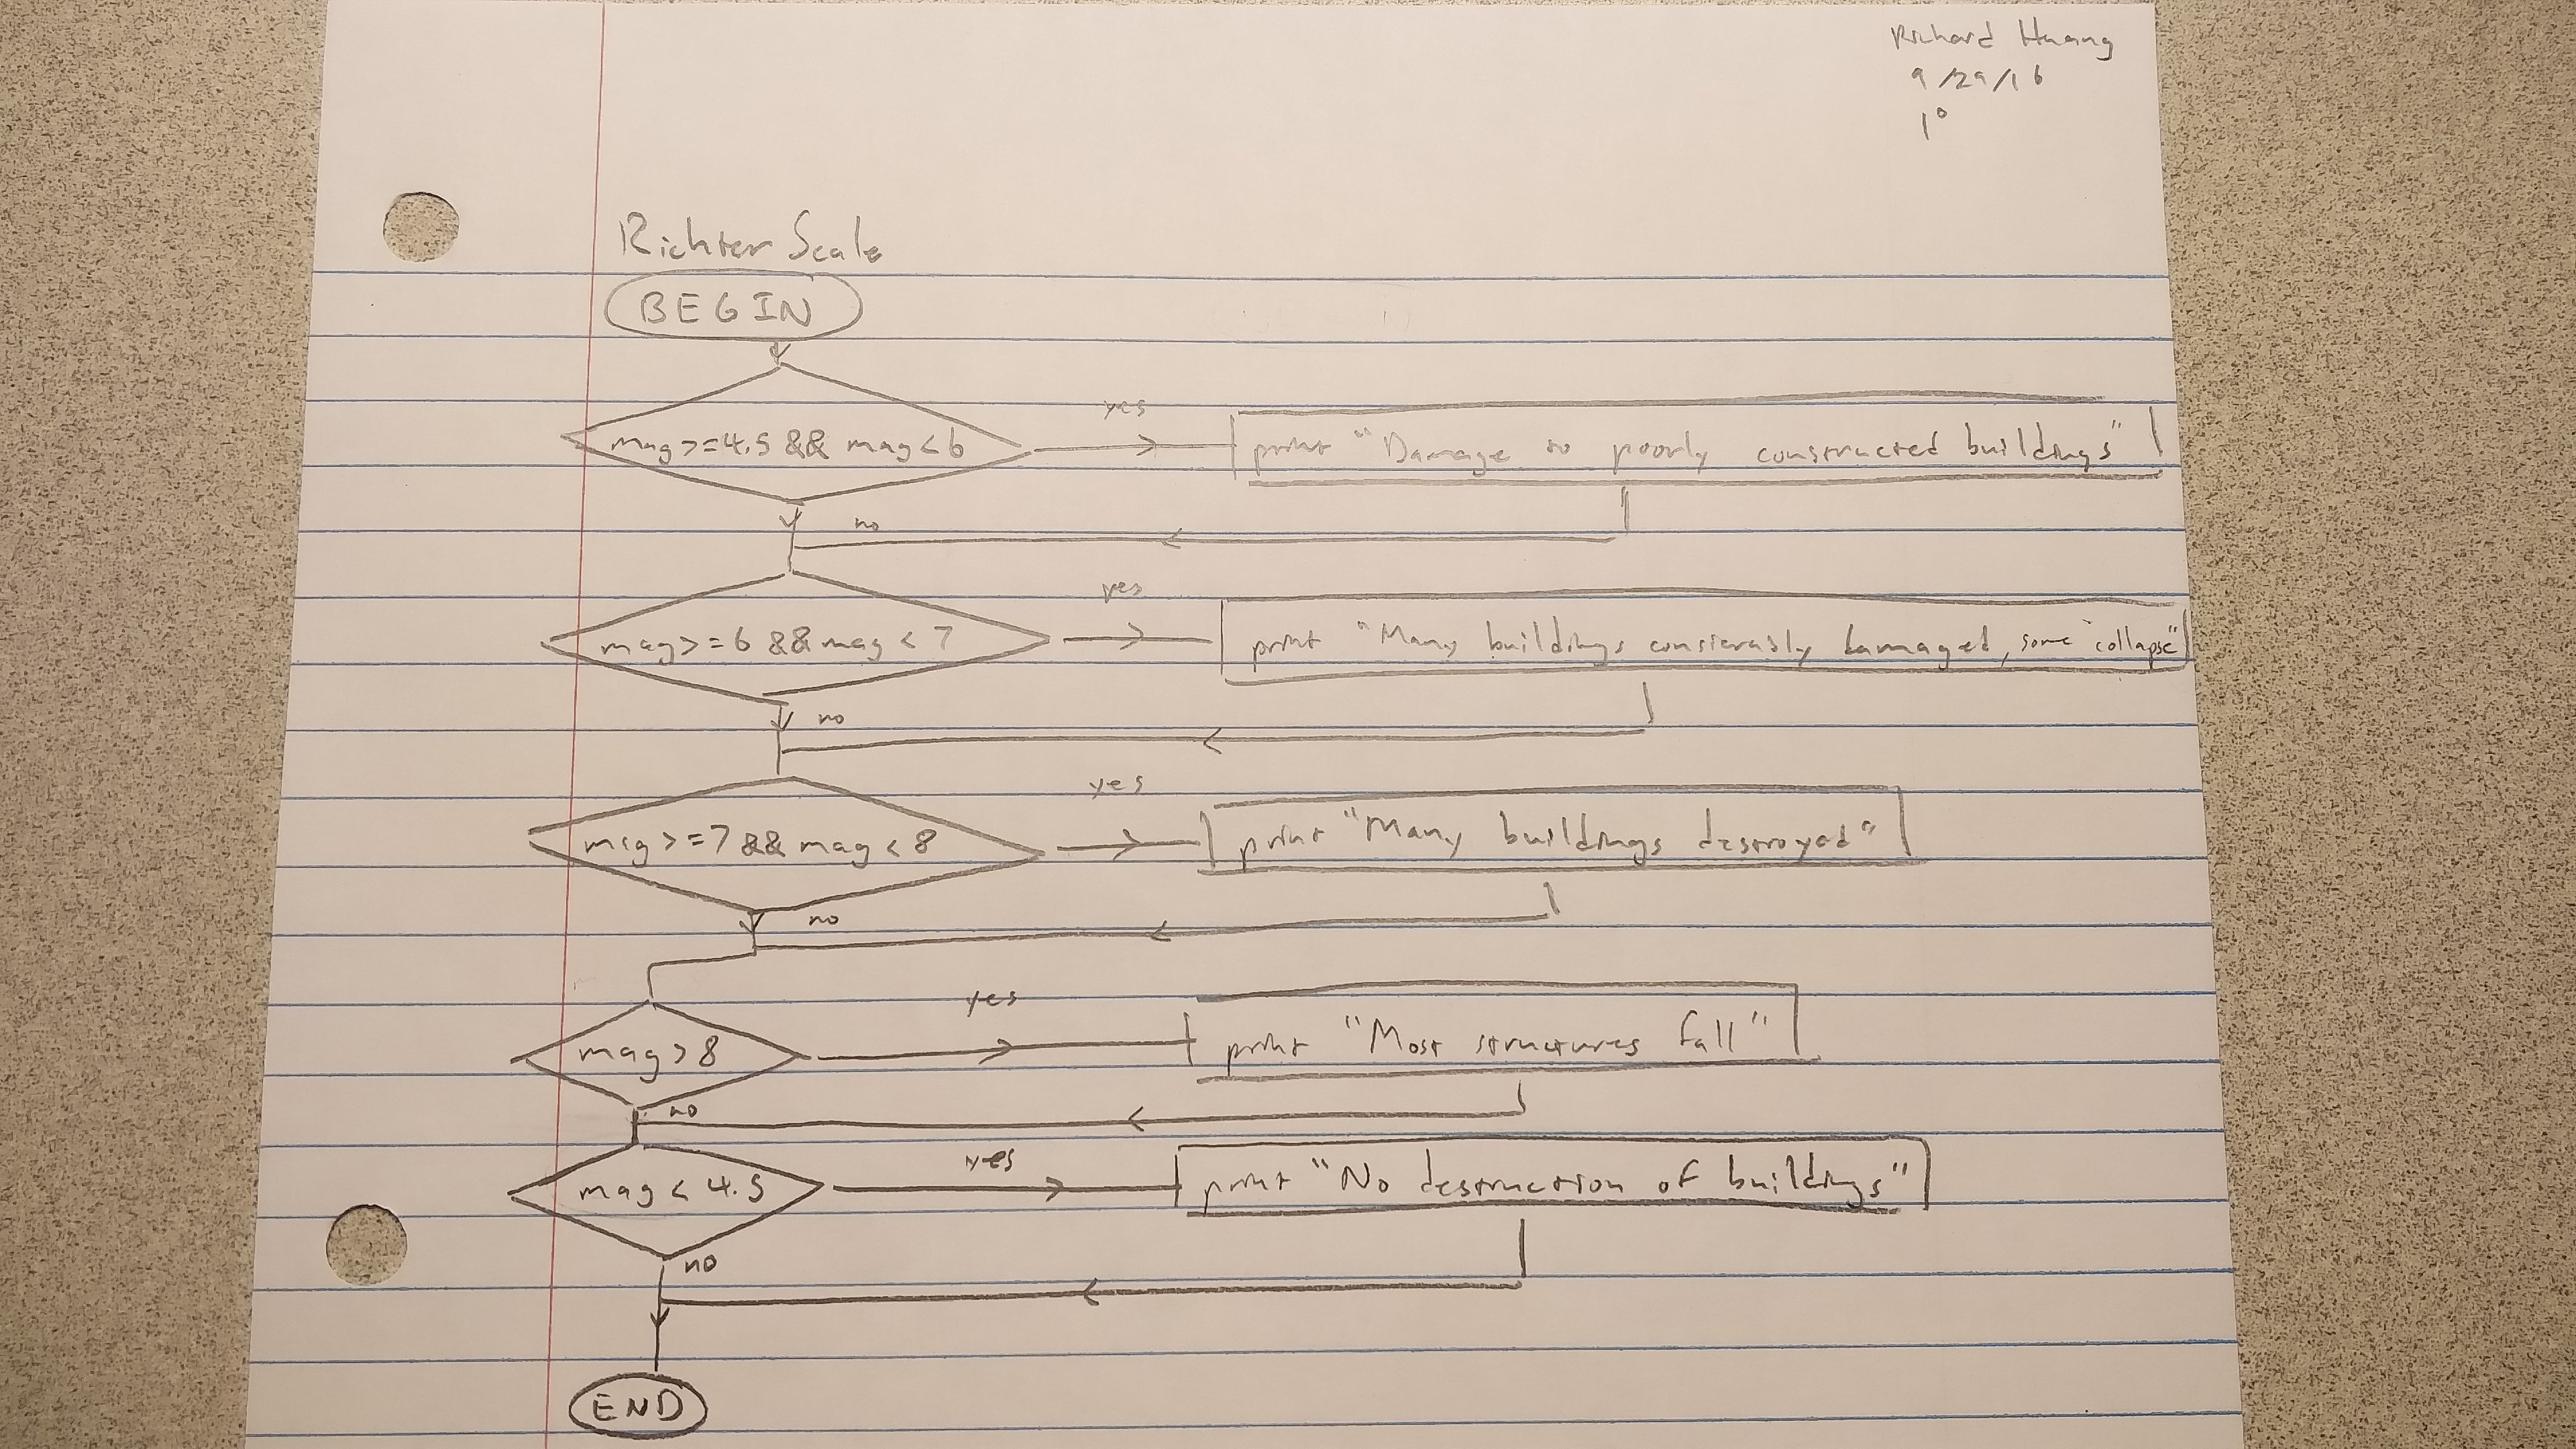 Richard Huang
9/29/16
1°
Richter Scale
BEGIN
mag>=4.5 && mag<6
yes
print "Damage to poorly constructed buildings"
no
mag>=6 && mag<7
yes
print "Many buildings consierably damaged, some collapse"
no
mag>=7 && mag<8
yes
print "Many buildings destroyed"
no
mag>8
yes
print "Most structures fall"
no
mag<4.5
yes
print "No destruction of buildings"
no
END